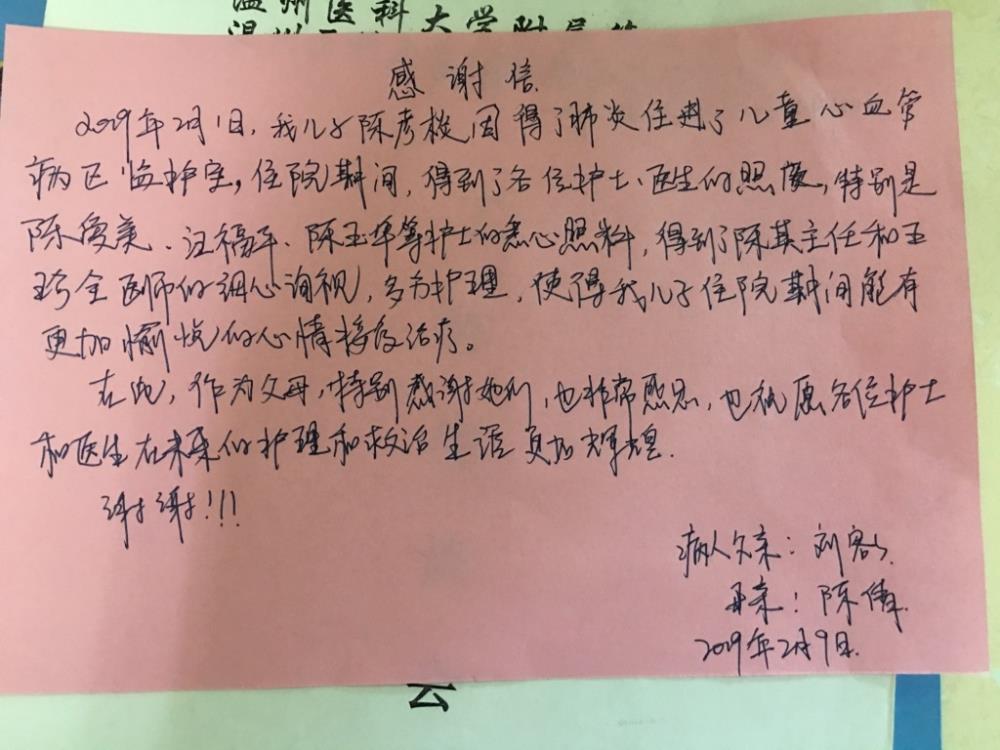 温州医科大学附属
感谢信
2019年2月1日，我儿子陈孝梭因得了肺炎住进了儿童心血管
病区监护室，住院期间，得到了各位护士、医生的照顾，特别是
陈爱美、汪福平、陈玉华等护士的悉心照料，得到了陈其主任和王
医师的细心询视，多方护理，使得我儿子住院期间能有
更加愉悦的心情接受治疗。
在此，作为父母，特别感谢她们，也非常感恩，也祝愿各位护士
和医生在未来的护理和救治生涯更加辉煌.
谢谢!!!
病人父亲：刘
母亲：陈倩.
2019年2月9日.